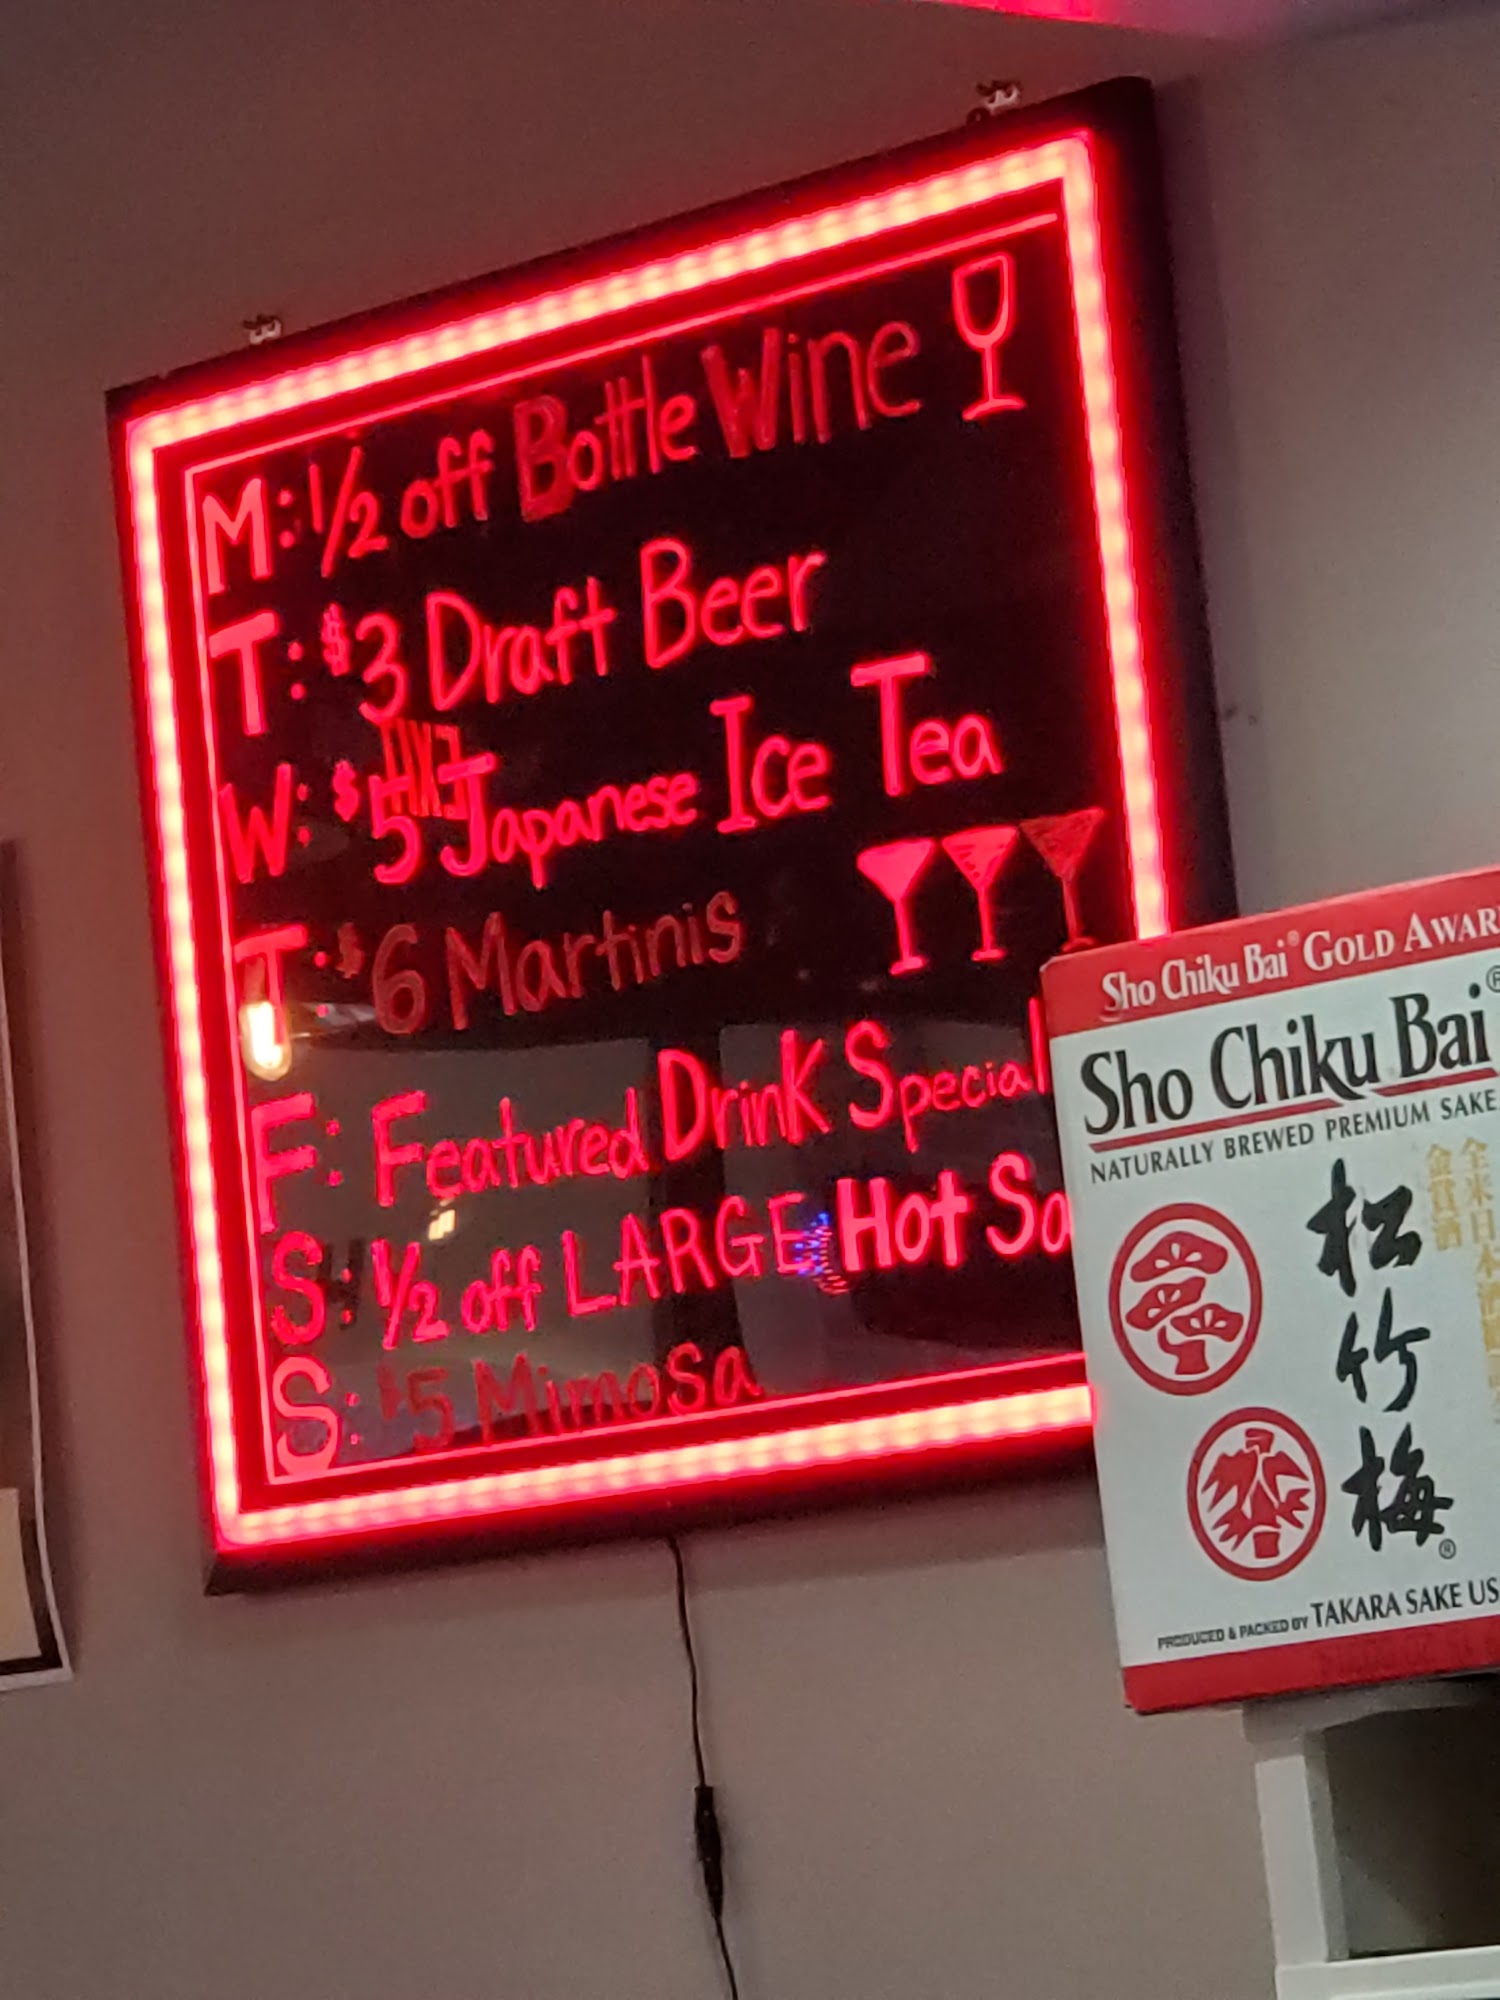 M: 1/2 off Bottle Wine
T: $3 Draft Beer
W: $5 Japanese Ice Tea
T: $6 Martinis
F: Featured Drink Special
S: 1/2 off LARGE Hot Sa
S: $5 Mimosa
EXIT
Sho Chiku Bai® GOLD AWAR
Sho Chiku Bai®
NATURALLY BREWED PREMIUM SAKE
全米日本酒
金賞酒
松竹梅®
PRODUCED & PACKED BY TAKARA SAKE US